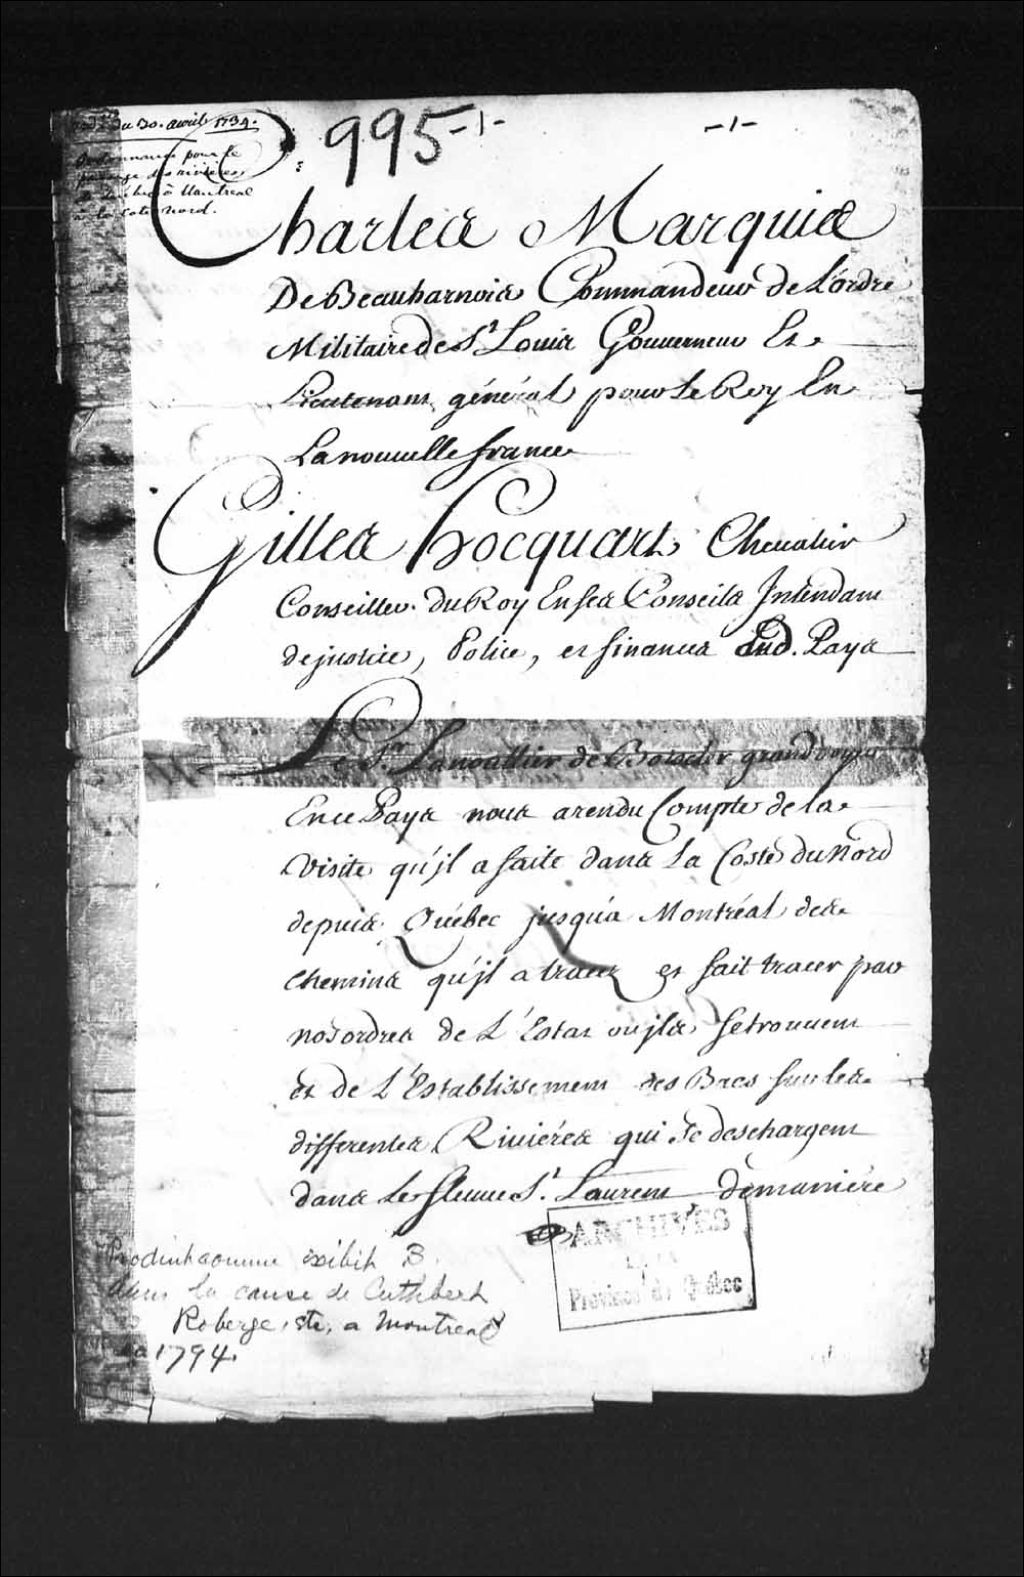 du 30. avril 1734.
Ordonnance pour le
passage des rivieres
de Quebec à Montreal
à la Cote nord.
995-1-
-1-
Charles Marquis
De Beauharnois Commandeur de L'ordre
Militaire de St. Louis Gouverneur Et
Lieutenant général pour Le Roy En
La nouvelle france
Gilles hocquart Chevalier
Conseiller du Roy En ses Conseils Intendant
de justice, Police, et finances Aud. Pays
Le Sr. Lanoullier de Boisclerc grand voyer
En ce Pays nous a rendu Compte de la
Visite qu'jl a faite dans La Coste du Nord
depuis Québec jusqu'a Montréal des
Chemins qu'jl a tracez et fait tracer par
nos ordres de L'Estat ou jls se trouvent
et de L'Establissement des Bacs sur les
differentes Riviéres qui se deschargent
dans Le fleuve St. Laurent de maniére
ARCHIVES
DE LA
Province de Québec
Produit comme exibit B.
dans la cause de Cuthbert
Roberge, etc, a Montreal
1794.